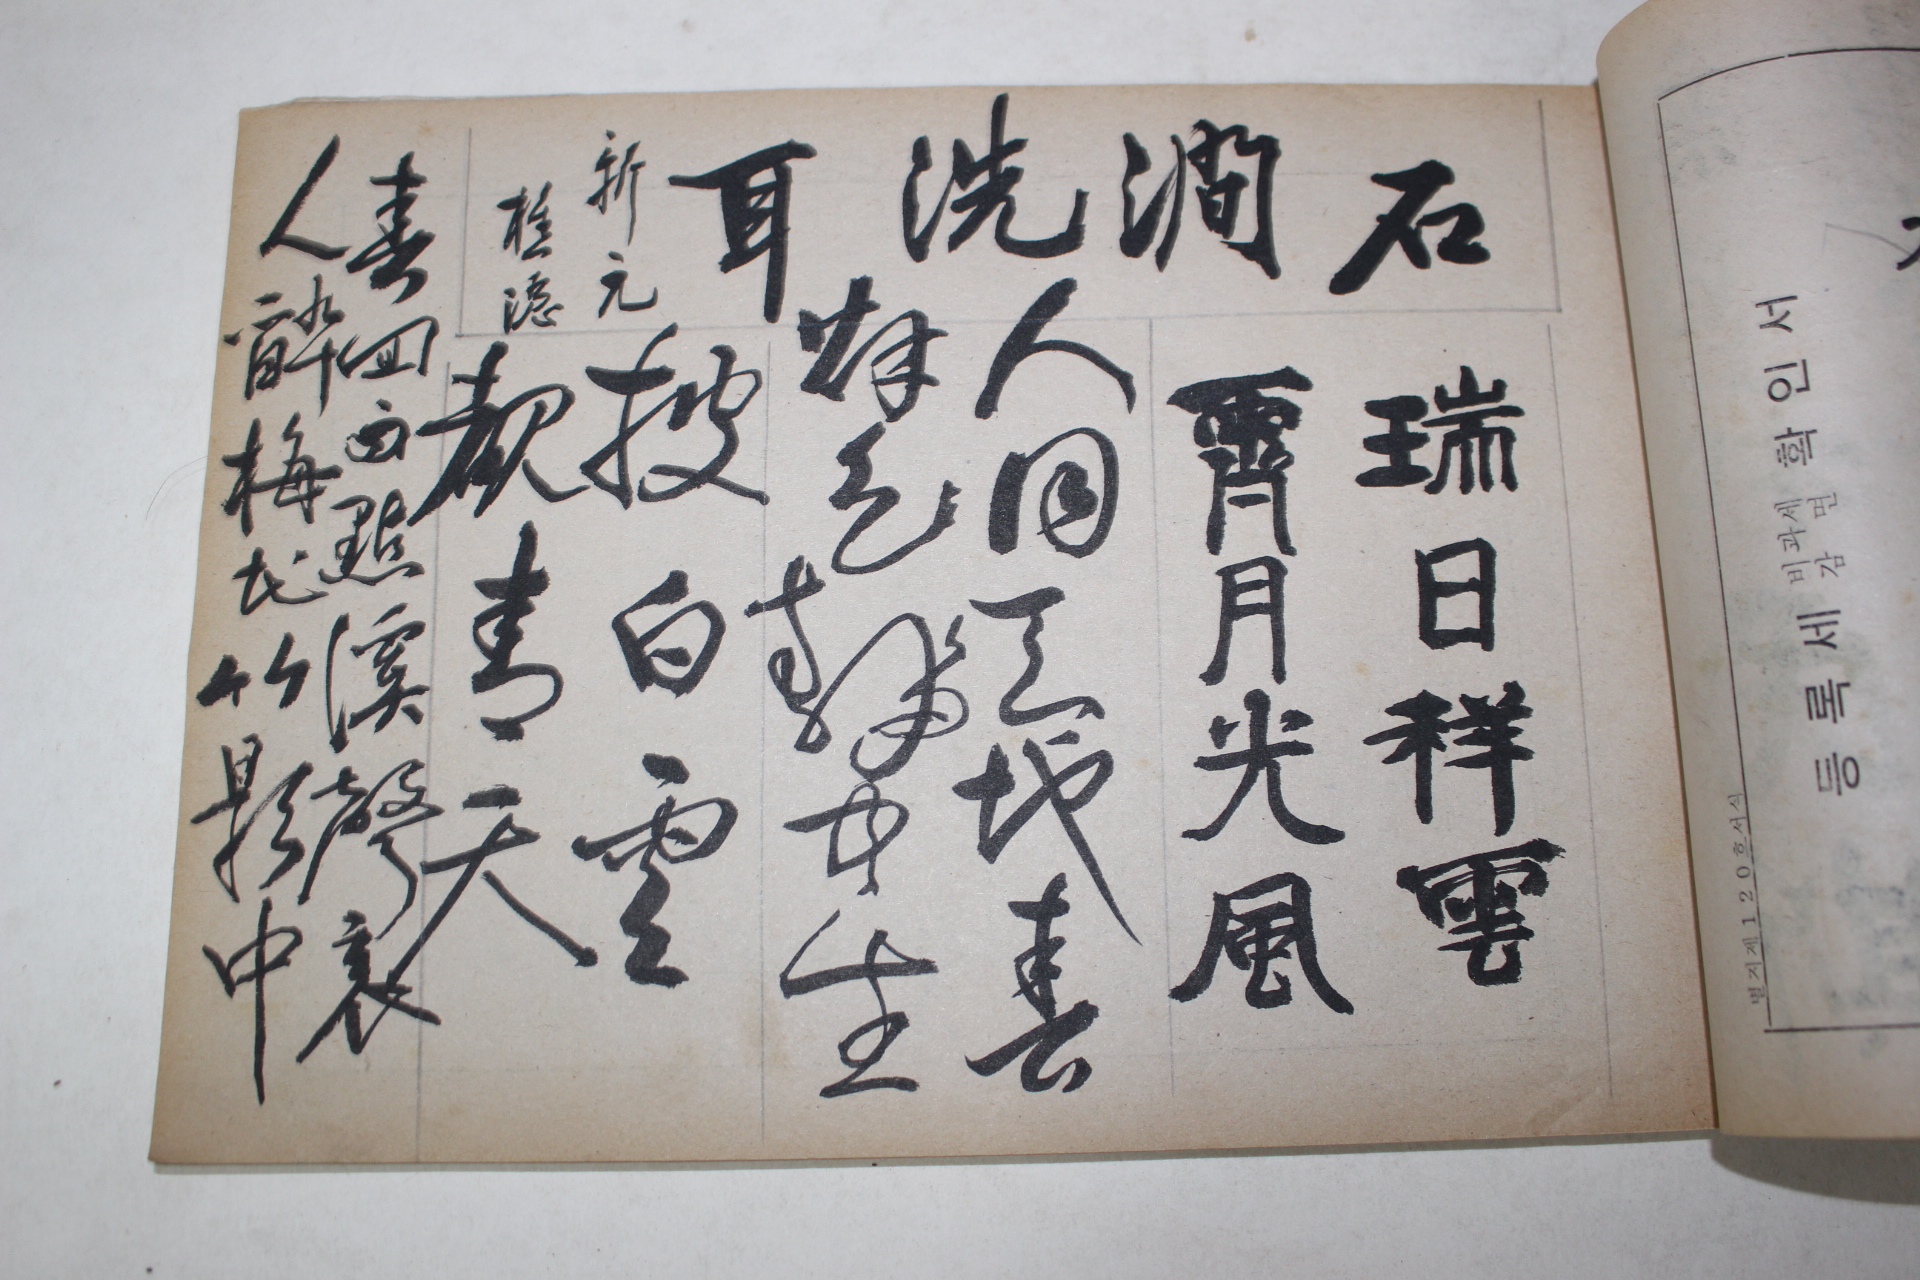 石澗洗耳
新元
瑞日祥雲
霽月光風
人同天地春
氣靜中生
披白雲
覩青天
春回雨點溪聲裏
人醉梅花竹影中
별지제120호서식
등록세 비과세 감면 확인서